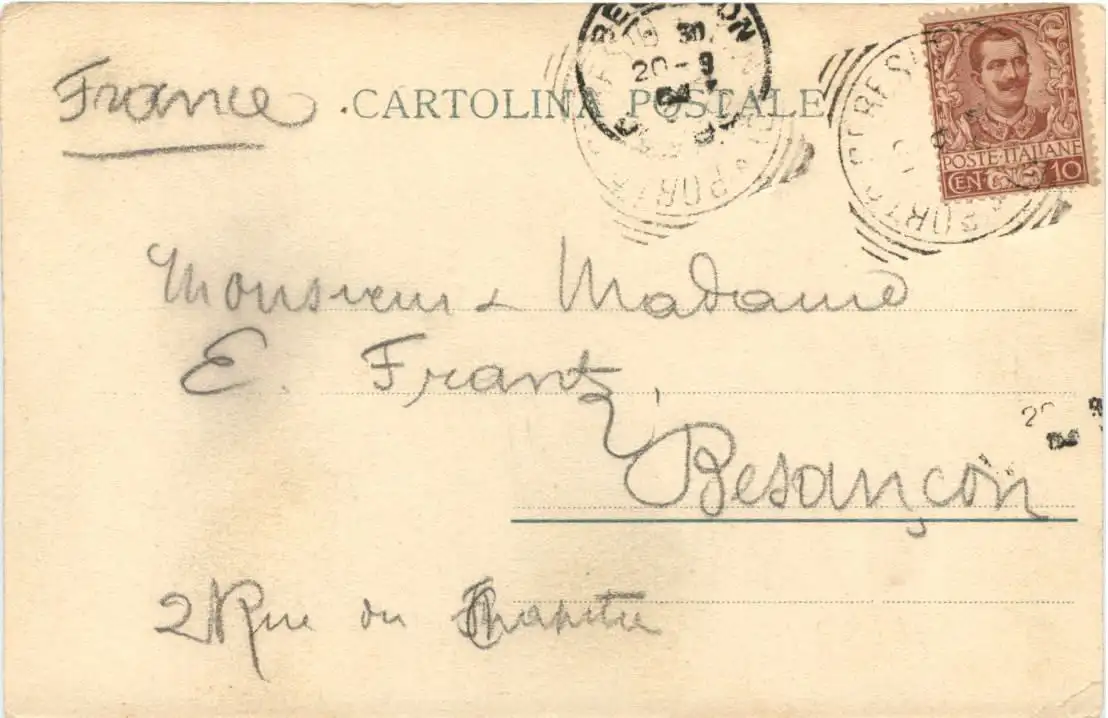 France
CARTOLINA POSTALE
BESANÇON
30
20-9
POSTE·ITALIANE
CENT. 10
PORTO CERESIO
Monsieur & Madame
E. Frantz,
Besançon
20 9
2 Rue du Chapitre